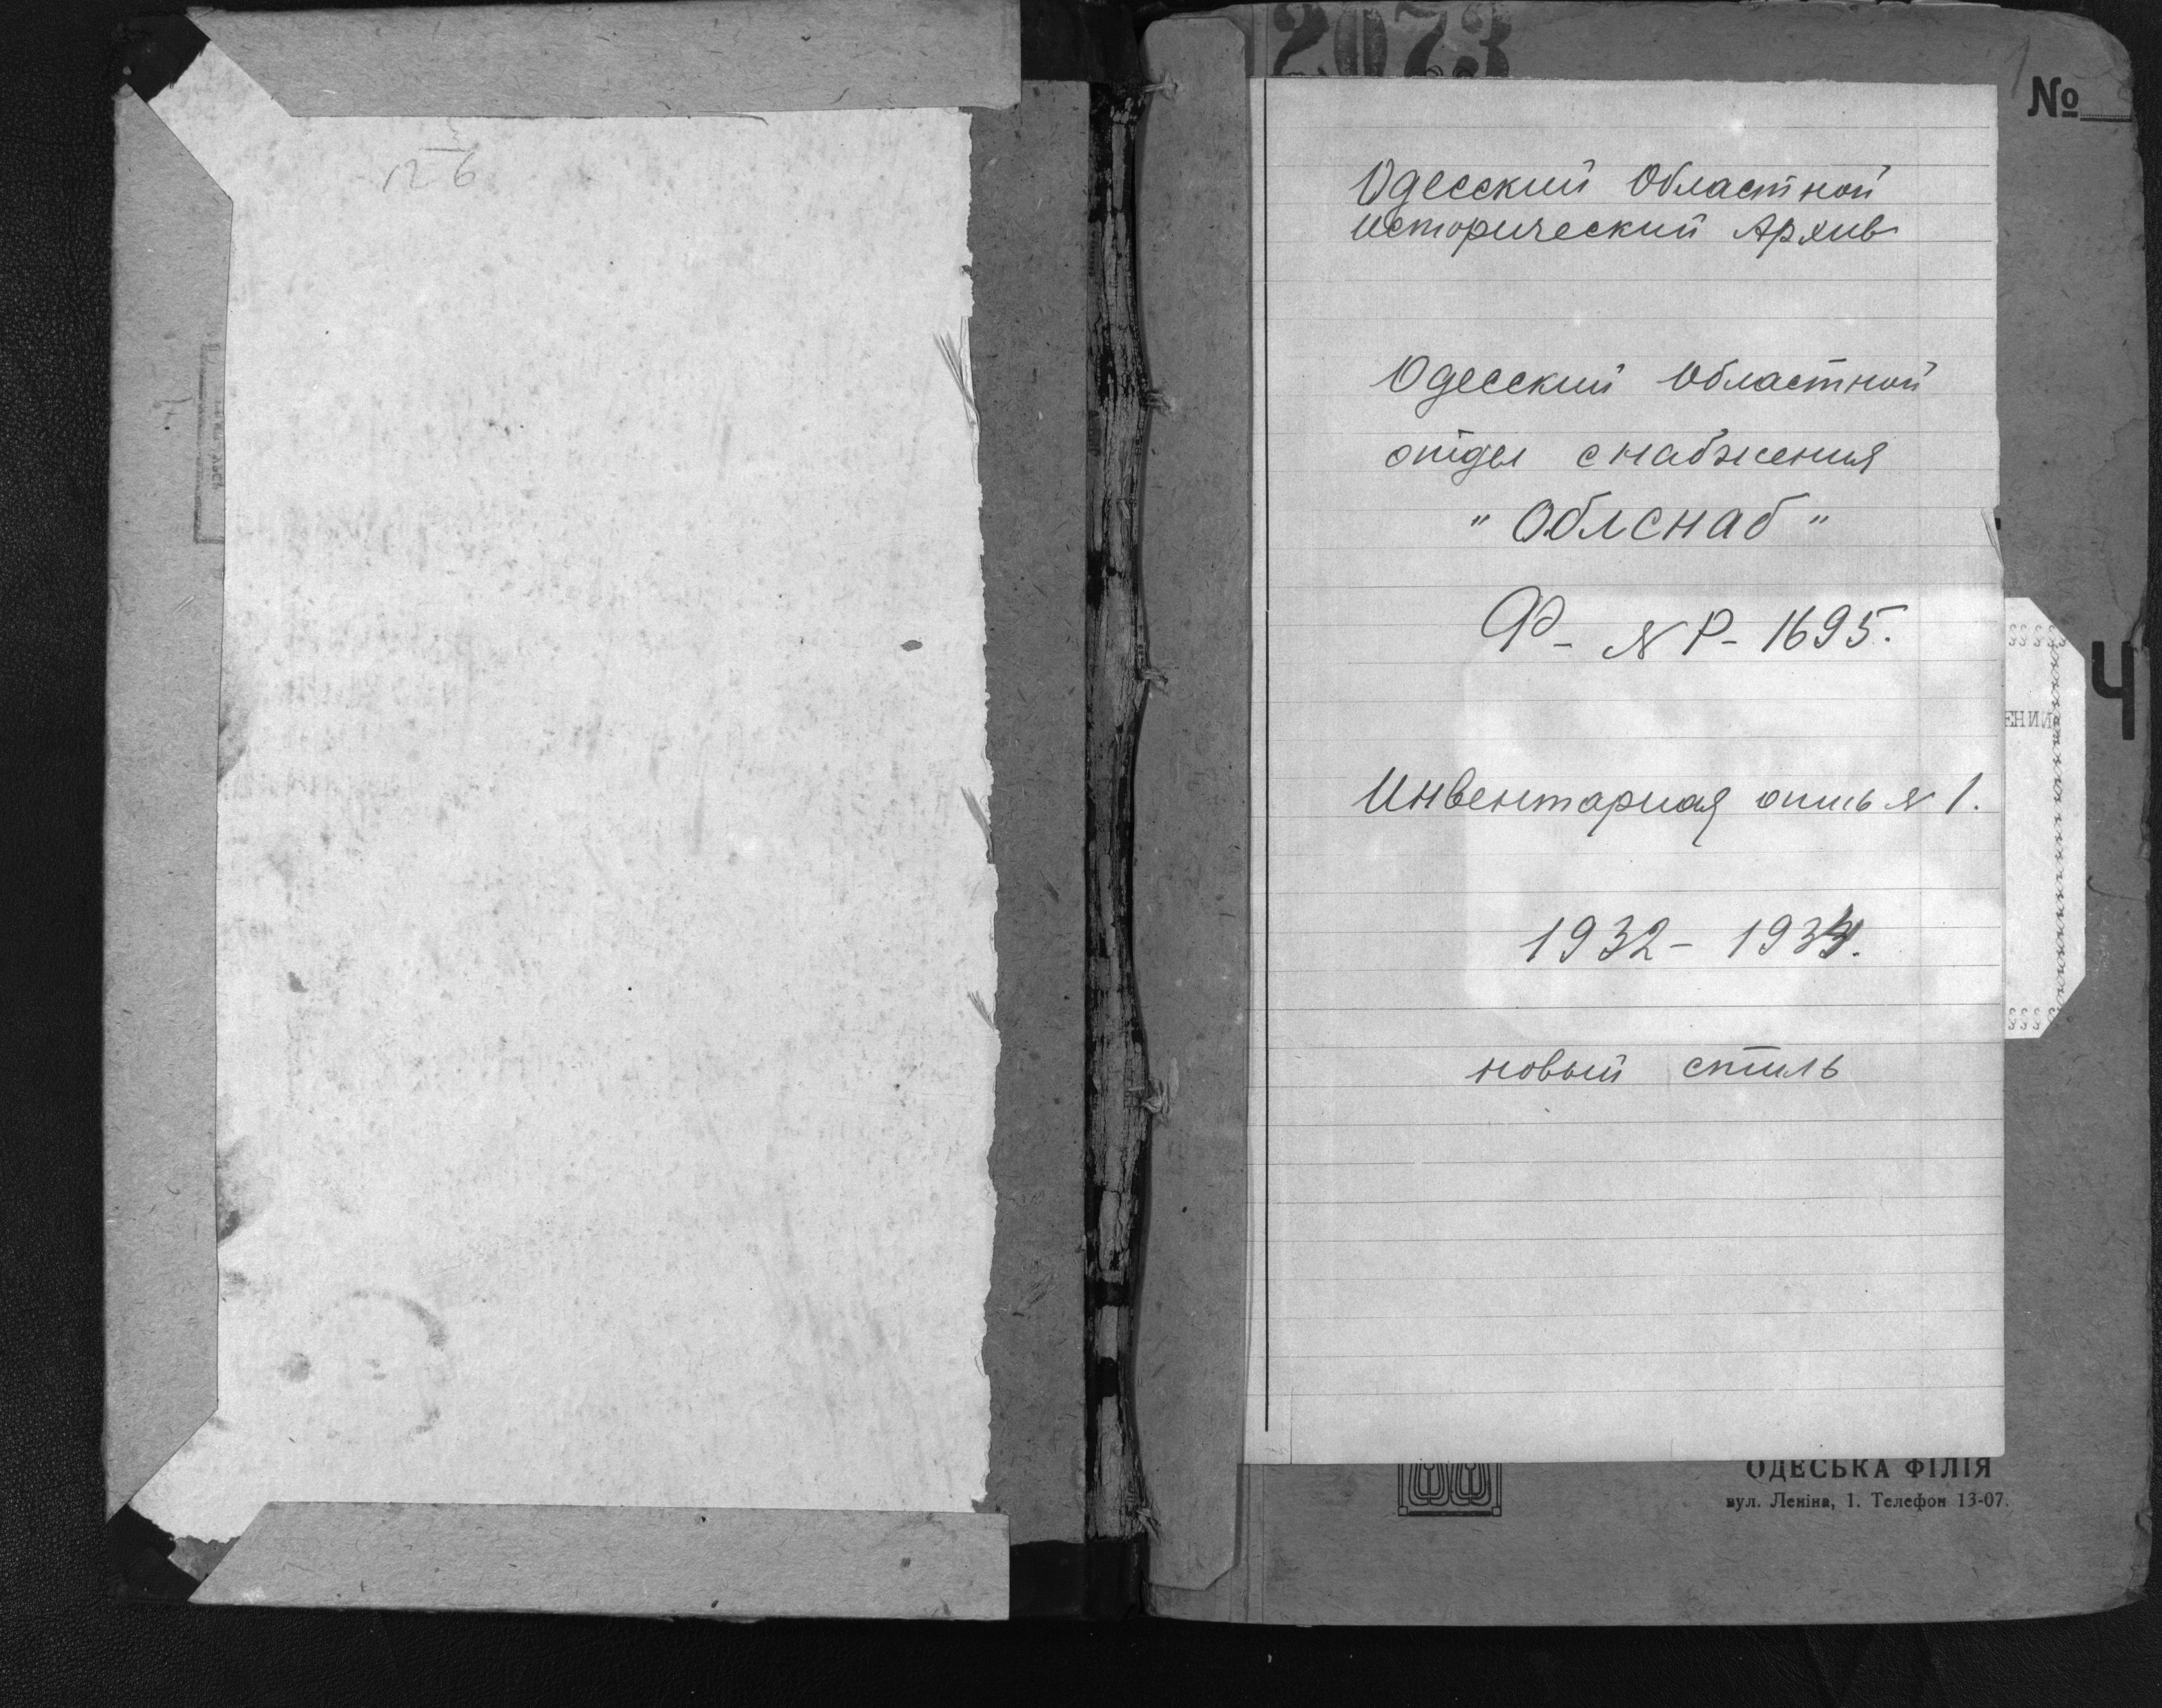 2073
№
1
12 6
Одесский Областной
исторический Архив
Одесский Областной
отдел снабжения
"Облснаб"
Ф- N Р- 1695.
ЕНИИ
Ч
Инвентарная опись N 1.
1932- 1934.
новый стиль
ОДЕСЬКА ФІЛІЯ
вул. Леніна, 1. Телефон 13-07.